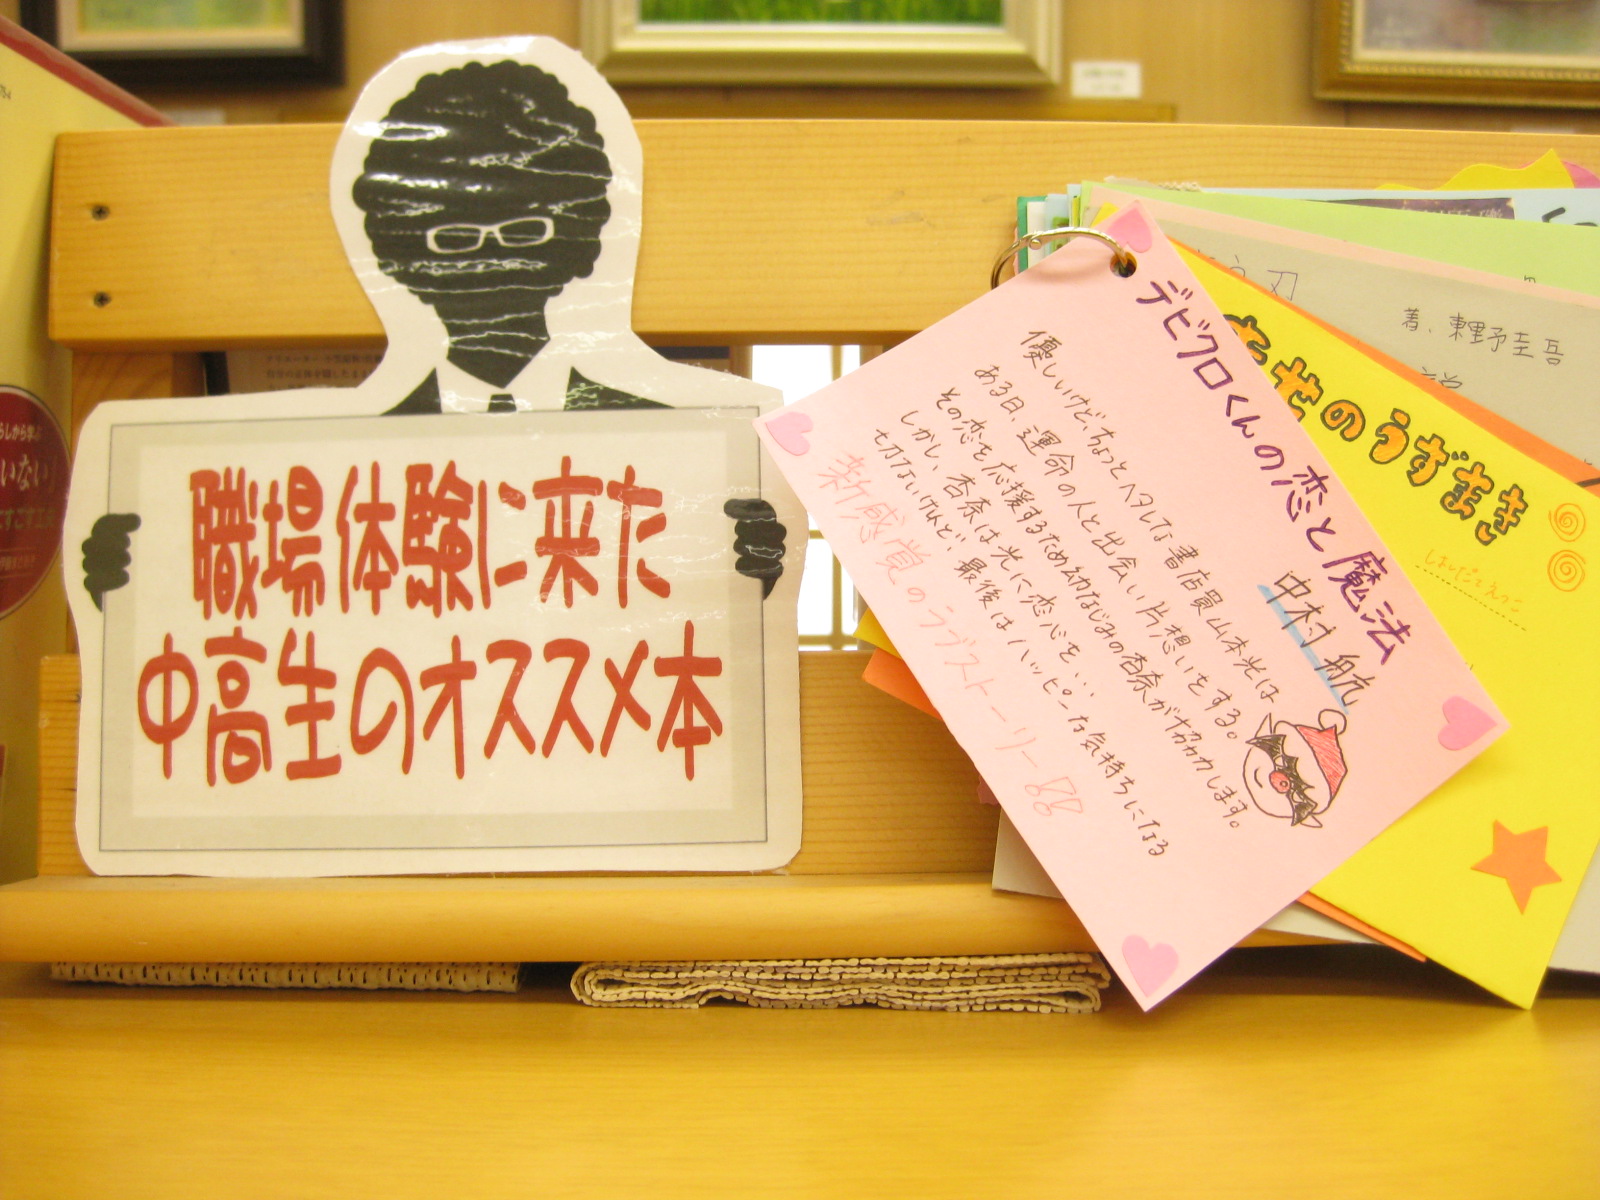 職場体験に来た
中高生のオススメ本
デビクロくんの恋と魔法
中村 航
優しいけど、ちょっとヘタレな書店員山本光は
ある日、運命の人と出会い片想いをする。
その恋を応援するため幼なじみの杏奈が協力します。
しかし、杏奈は光に恋心を・・・
切ないけれど、最後はハッピーな気持ちになる
新感覚のラブストーリー
せのうずまき
著、東野圭吾
刃
いない」